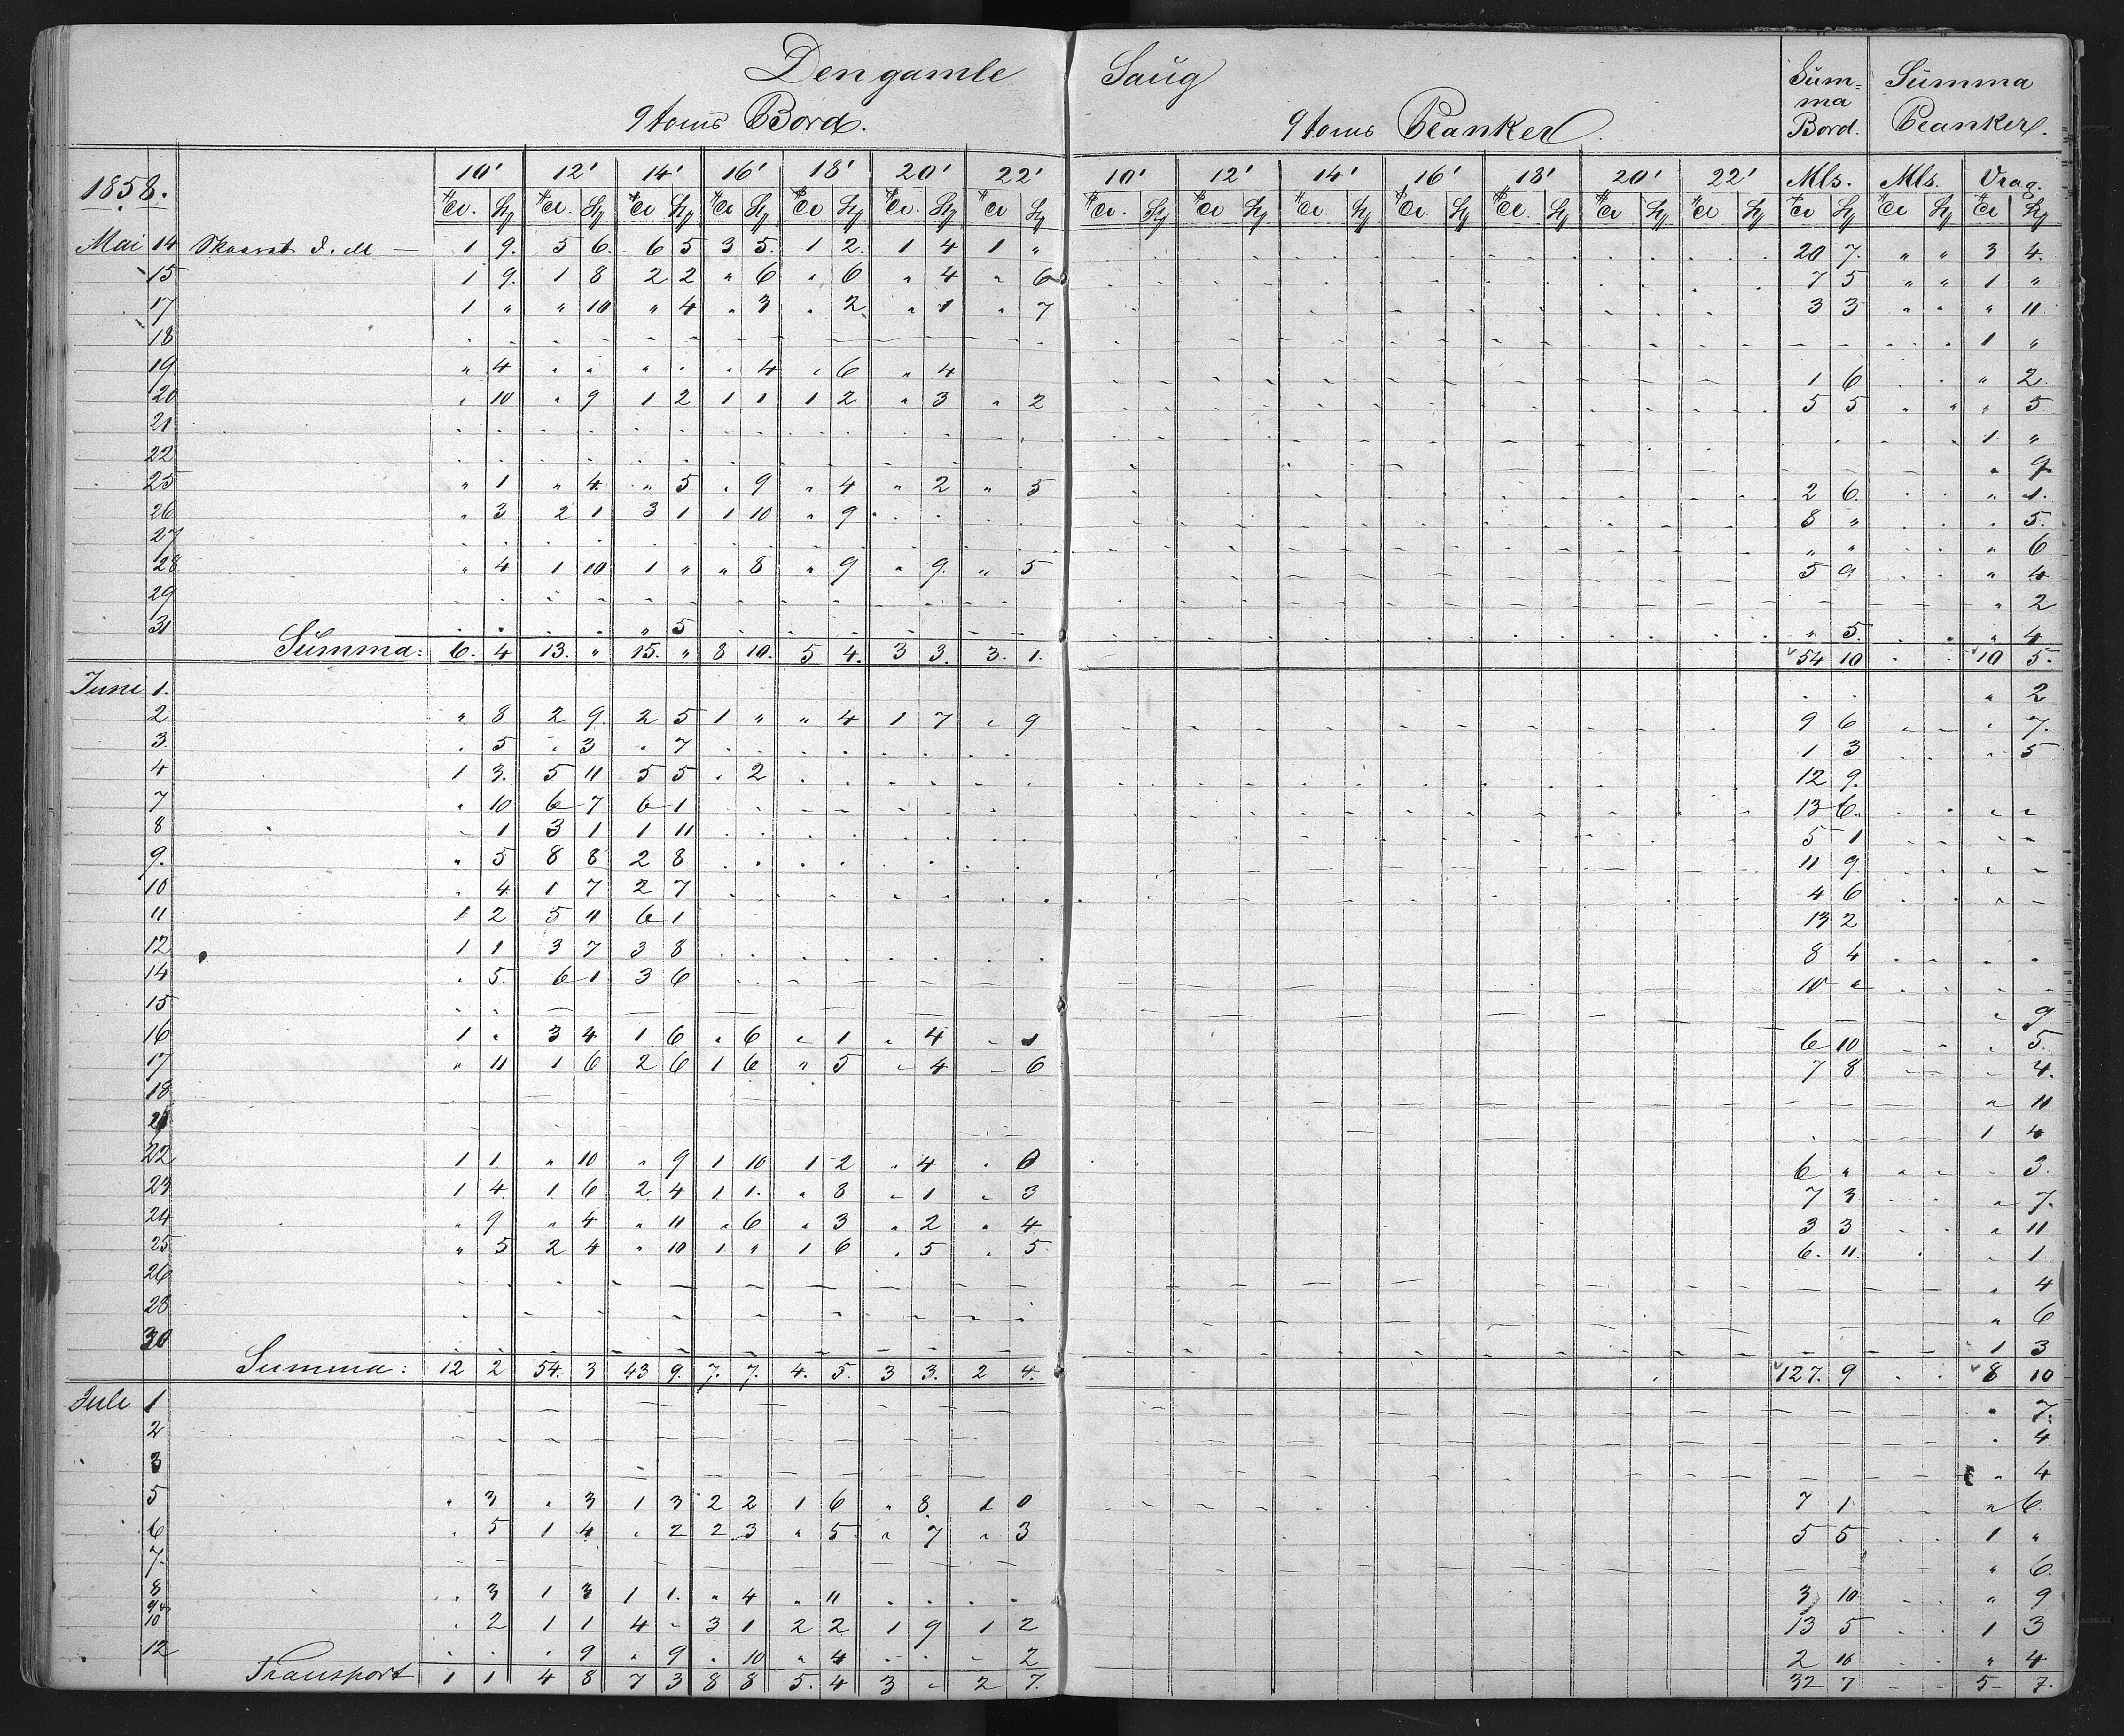 Den gamle Saug
9 toms Bord. 9 toms Planker. Summa Bord. Summa Planker.
1858. 10' 12' 14' 16' 18' 20' 22' 10' 12' 14' 16' 18' 20' 22' Mls. Mls. Vrag.
Mai 14 Skaaret d. M — 1 9. 5 6. 6 5 3 5. 1 2. 1 4 1 " 20 7. " " 3 4.
15 1 9. 1 8 2 2 " 6 " 6 " 4 " 6 7 5 " " 1 "
17 1 " " 10 " 4 " 3 " 2 " 1 " 7 3 3 " " " 11
18 1 "
19 " 4 " " " " " 4 " 6 " 4 1 6 " 2.
20 " 10 " 9 1 2 1 1 1 2 " 3 " 2 5 5 " " " 5
21 1 "
22 " 9
25 " 1 " 4 " 5 " 9 " 4 " 2 " 5 2 6. " 1.
26 " 3 2 1 3 1 1 10 " 9 8 " " 5.
27 " " " 6
28 " 4 1 10 1 " " 8 " 9 " 9. " 5 5 9 " 4
29 " 2
31 " 5 " 5. " 4
Summa: 6. 4 13. " 15. " 8 10. 5 4. 3 3. 3. 1. 54 10 10 5.
Juni 1. " 2
2 " 8 2 9. 2 5 1 " " 4 1 7 " 9 9 6 " 7.
3. " 5 " 3 " 7 1 3 " 5
4 1 3. 5 11 5 5 " 2 12 9.
7 " 10 6 7 6 1 13 6. " "
8 " 1 3 1 1 11 5 1
9. " 5 8 8 2 8 11 9
10 " 4 1 7 2 7 4 6
11 1 2 5 11 6 1 13 2
12 1 1 3 7 3 8 8 4
14 " 5. 6 1 3 6 10 "
15 " 9
16 1 " 3 4 1 6 " 6 " 1 " 4 " 1 6 10 " 5.
17 " 11 1 6 2 6 1 6 " 5 " 4 " 6 7 8 " 4.
18 " 11
1 4
22 1 1 " 10 " 9 1 10 1 2 " 4 " 6 " " 3.
23 1 4 1 6 2 4 1 1. " 8 " 1 " 3 7 3 " 7.
24 " 9 " 4 " 11 " 6 " 3 " 2 " 4 3 3 " 11
25 " 5 2 4 " 10 1 " 1 6 " 5 " 5 6. 11. " 1
26 " 4
28 " 6
30 1 3
Summa: 12 2 54. 3 43 9. 7. 7. 4. 5. 3 3. 2 4. 127. 9 8 10
Juli 1 " 7.
2 " 4
3 " 4
5 " 3 " 3 1 3 2 2 1 6 " 8 1 0 7 1 " 6.
6 " 5 1 4 " 2 2 3 " 5. " 7 " 3 5 5 1 "
7. " 6.
8 " 3 1 3 1 1. " 4 " 11 3 10 " 9
9 & 10 " 2 1 1 4 - 3 1 2 2 1 9 1 2 13 5 1 3
12 " 9 " 9 " 10 " 4 " 2 2 10 " 4
Transport 1 1 4 8 7 3 8 8 5. 4 3 " 2 7. 32 7 5 7.